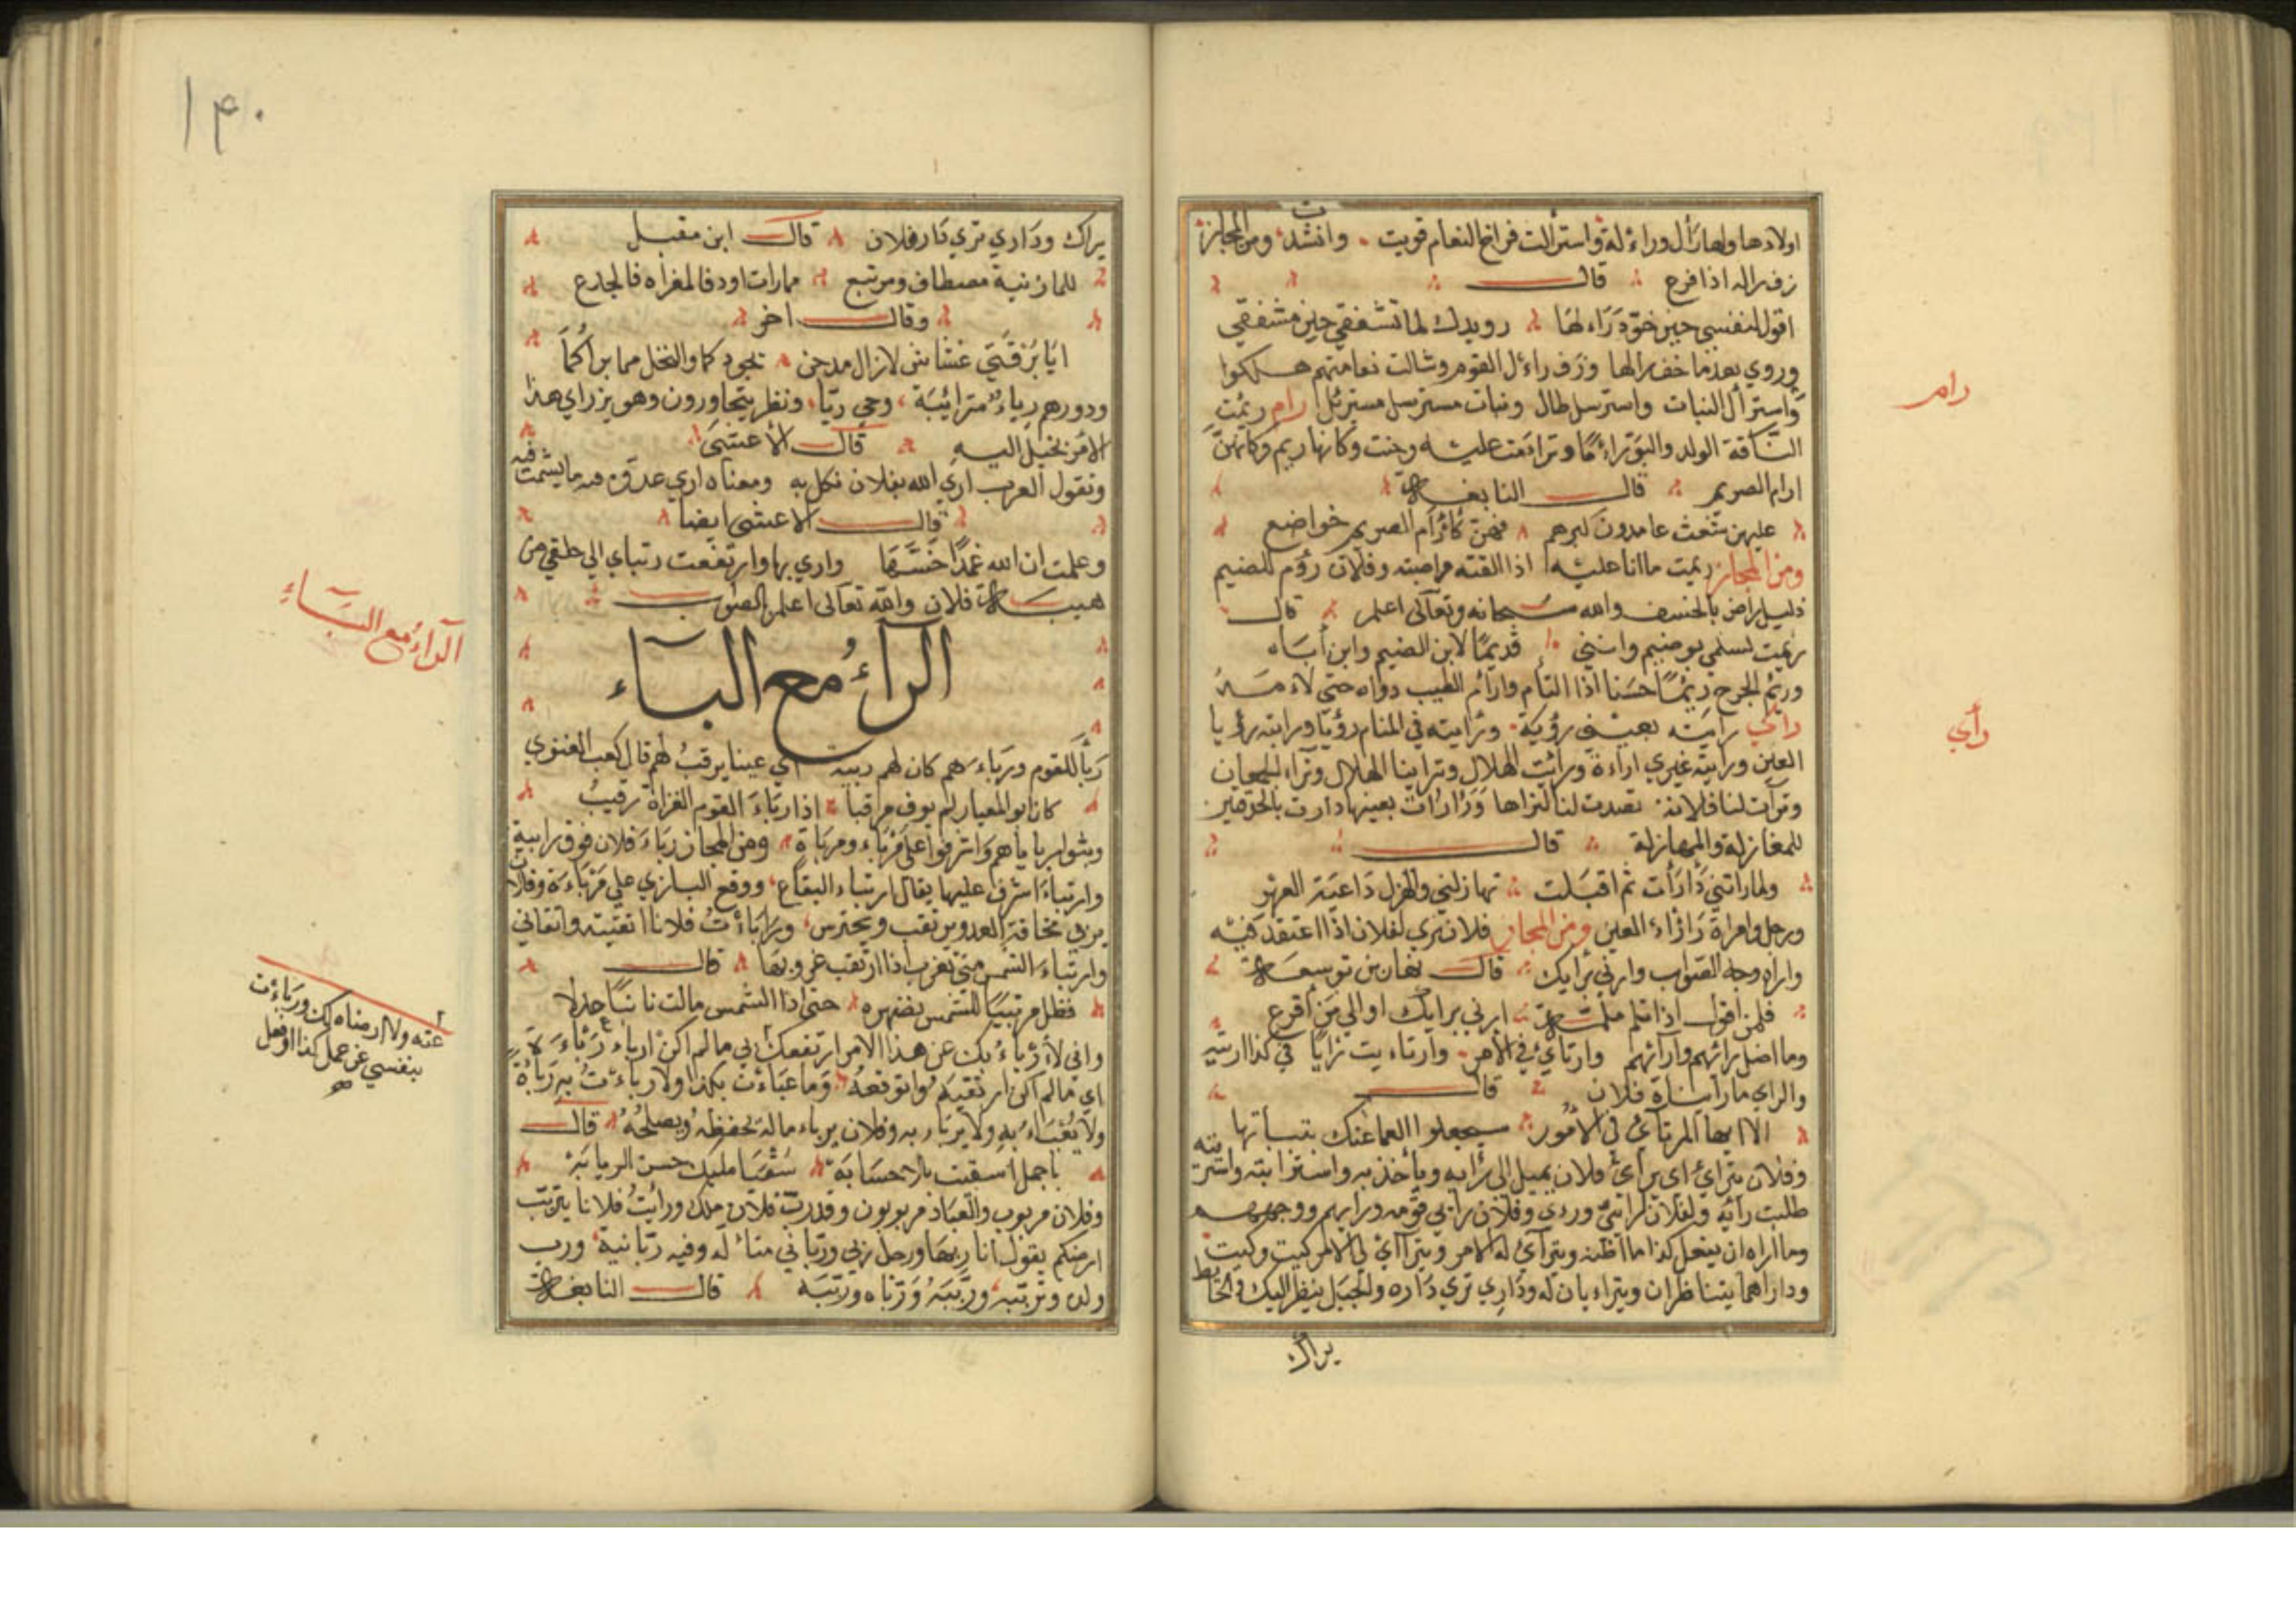 اولادها ولها رأل وراءلة واسترألت فراخ النعام قويت وانشد ومن المجاز
زف راله اذا فرع قال
اقول لنفسي حين خود راءلها رويدك لما تشفقي حين مشفقي
وروي بعدما خف رالها وزف راءل القوم وشالت نعامتهم هلكوا
واسترأل النبات واسترسل طال ونبات مسترسل مسترئل رام ريمت
الناقة الولد والبو راءمًا وترامت عليه وحنت وكانها ريم وكانهن
ارام الصريم قال النابغة
عليهن شعث عامدون لبرهم فهن كآرام الصريم خواضع
ومن المجاز ريمت ما انا عليه اذا الفته مراضيته وفلان رؤم للضيم
ذليل راض بالخسف والله سبحانه وتعالى اعلم قال
رئمت لسلمي بو ضيم وانني قديمًا لابن الضيم وابن اباه
وريم الجرح ريمًا حسنا اذا التأم وارائم الطيب دواه حتى لاءمه
رأي رايته بعيني رؤية ورايته في المنام رؤيا ورايته رؤيا
العين ورايته غيري اراءة ورأيت الهلال وتراينا الهلال وتراء الجمعان
وترآت لنا فلانة تصدت لنا لنراها ورَأرأت بعينها دارت بالحدقتين
للمغازلة والمهازلة قال
ولما راتني رأرأت ثم اقبلت تهازلني والهزل داعية العهر
ورجل وامراة رأراء العين ومن المجاز فلان يري لفلان اذا اعتقد فيه
واراه وجه الصواب وارني برايك قال نهار بن توسعة
فلمن اقول اذا تلم ملمة ارني برايك او الي من افزع
وما اضل رائهم وآرائهم وارتأي في الامر وارتاءيت رايًا في كذا
والراي ما رآه فلان قال
الا ايها المرتأي في الامور سيجلوا العما عنك تبيانها
وفلان يترائ اى براي فلان يميل الى رأيه وياخذ به واسترايته
طلبت رأيه
وما اراه ان يفعل كذا ما اظنه ويترآي له الامر ويتراأي لي الامر كيت وكيت
وداراهما يتناظران ويتراءيان له وداري تري داره والجبل ينظر اليك والحائط
يراك
رام
رأي
١٤٠
يراك وداري تري دار فلان قال ابن مقبل
للمازنية مصطاف ومرتبع مما رات اود فالمقراه فالجدع
وقال اخر
ايا برقتي غشاش لازال مدجن يجود كما والنخل مما يراكما
ودورهم رياء مترائية وحي رياء ونظر يتجاورون وهو يراي هذا
الامر يخيل اليه قال الاعشى
وتقول العرب اري الله بفلان نكل به ومعناه اري عدوه فيه ما يشمت به
قال الاعشى ايضا
وعلمت ان الله عمدًا خسها واري بها وارتفعت رئتاي الي حلقي من
هيبة فلان والله تعالى اعلم بالصواب
الراء مع الباء
ربأ للقوم ورباءهم كان لهم ربيئة اي عينا يرقب لهم قال كعب الغنوي
كان ابو المغيار لم يوف مرقبا اذا رباء القوم الغزاة رقيب
وبثوا رباياهم واشرفوا على مرباء ومرباة ومن المجاز رباء فلان فوق رابية
وارتباء اشرف عليها يقال ارتباء اليفاع ووقع البازي علي مرباءة وفلان
يربي مخافة العدو يرتقب ويحترس وراباءت فلانا اتقيته واتقاني
وارتباء الشمس متى تغرب اذا ارتقب غروبها قال
فظل مرتبيًا للشمس حتى اذا الشمس مالت جانبًا عدلا
واني لأربأ بك عن هذا الامر ارتفعك
اي ما لم اكن ارتقبه واتوقعه وما عباءت بكذا ولا رباءت به رباءة
ولا يعباء به ولا يرباء به وفلان يرباء ماله يحفظه ويصلحه قال
يا جمل اسقيت بلا حسابة سقيا مليك حسن الربابة
وفلان مربوب والعباد مربوبون وقد رب فلان ملك ورايت فلانا يتربب
ارضكم يقول انا ربها ورجل ربي ورباني متأله وفيه ربانية ورب
ولده وترببه ورببه ورباه ورببه قال النابغة
الراء مع الباء
عنه ولا ارضاه لك ورباءت
بنفسي عن عمل كذا او فعل